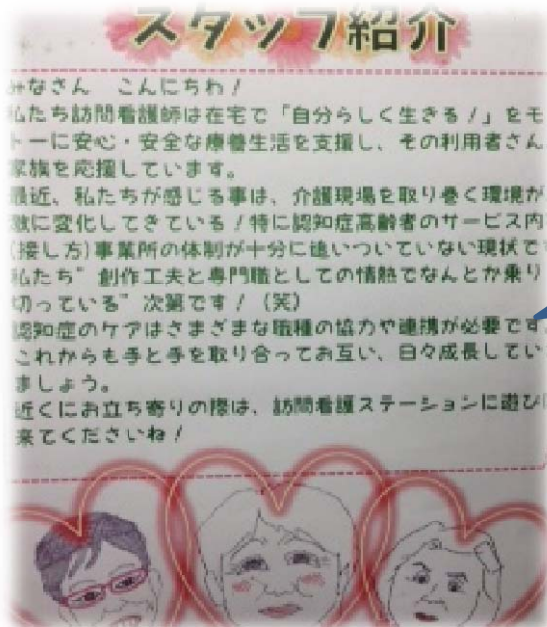 スタッフ紹介
みなさん　こんにちわ!
私たち訪問看護師は在宅で「自分らしく生きる!」をモ
トーに安心・安全な療養生活を支援し、その利用者さん
家族を応援しています。
最近、私たちが感じる事は、介護現場を取り巻く環境が
激に変化してきている!特に認知症高齢者のサービス内
(接し方)事業所の体制が十分に追いついていない現状で
私たち"創作工夫と専門職としての情熱でなんとか乗り
切っている"次第です!(笑)
認知症のケアはさまざまな職種の協力や連携が必要です。
これからも手と手を取り合ってお互い、日々成長してい
ましょう。
近くにお立ち寄りの際は、訪問看護ステーションに遊び
来てくださいね!